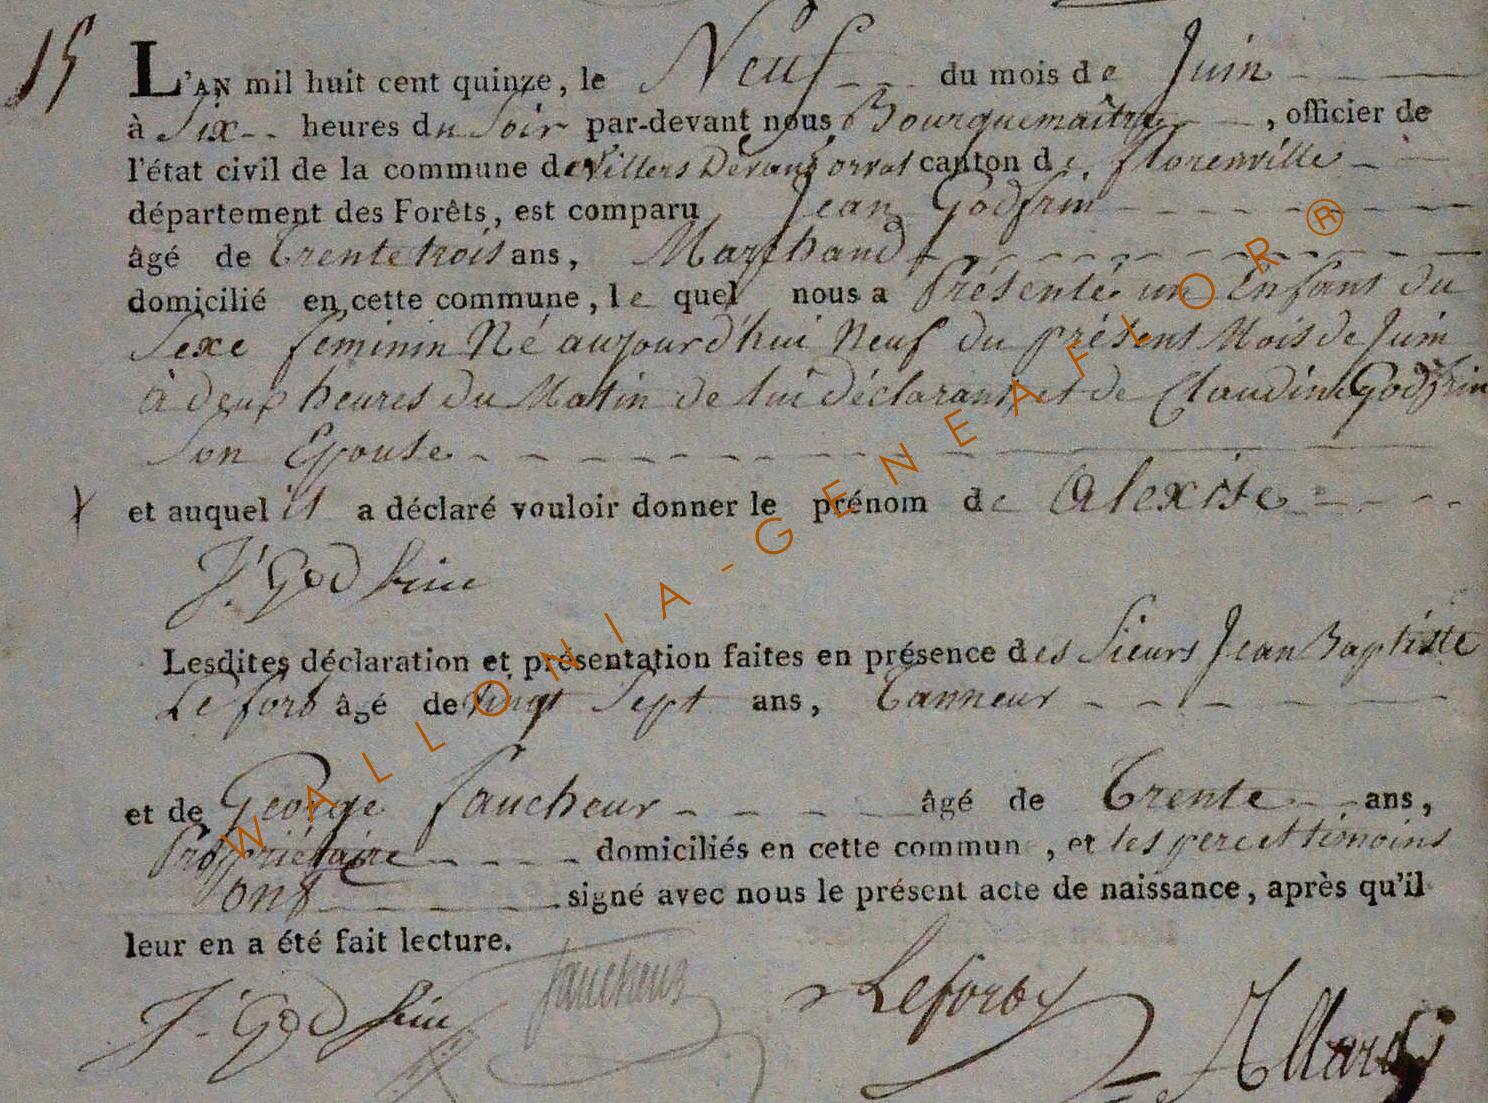 15
L'AN mil huit cent quinze, le Neuf du mois de Juin
à Six heures du Soir par-devant nous Bourguemaître, officier de
l'état civil de la commune de Villers Devant orval canton de florenville
département des Forêts, est comparu Jean Godfrin
âgé de trente trois ans, Marchand
domicilié en cette commune, le quel nous a Présenté un Enfant du
Sexe feminin Né aujourd'hui Neuf du présent Mois de Juin
à deux heures du Matin de lui déclarant et de Claudine Godfrin
Son Epouse
et auquel il a déclaré vouloir donner le prénom de Alexise
J. Godfrin
Lesdites déclaration et présentation faites en présence des Sieurs Jean Baptiste
Lefort âgé de vingt Sept ans, Tanneur
et de George faucheur âgé de Trente ans,
Propriétaire domiciliés en cette commun , et les pere et témoins
ont signé avec nous le présent acte de naissance, après qu'il
leur en a été fait lecture.
J. Godfrin faucheur Lefort Allard
WALLONIA-GENEAFLOR®